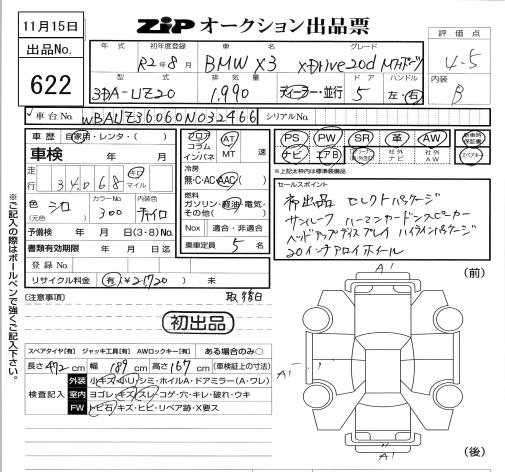 11月15日
ZIP オークション出品票
評価点
4-5
出品No.
622
年式 初年度登録 車名 グレード
R2年8月 BMW X3 xDrive20d Mスポーツ
内装
B
型式 排気量 ドア ハンドル
3DA-UZ20 1,990 ディーラー・並行 5 左・右
車台No. WBAUZ36060N032466 シリアルNo.
車歴 自家用・レンタ・( )
フロア コラム インパネ
AT MT 速
PS PW SR 革 AW 新車時保証書
ナビ エアB 社外ナビ 社外AW スペアキー
※上記太枠内は標準装備品
車検 年 月
走行 34,068 キロ マイル
冷房
無・C・AC・AAC( )
色 シロ (元色)
カラーNo. 300
内装色 チャイロ
燃料
ガソリン・軽油・電気・その他( )
予備検 年 月 日(3・8)No.
Nox 適合・非適合
書類有効期限 年 月 日迄
乗車定員 5 名
登録No.
リサイクル料金 有(¥21720) 未
セールスポイント
初出品 セレクトパッケージ
サンルーフ ハーマンカードンスピーカー
ヘッドアップディスプレイ ハイラインパッケージ
20インチアロイホイール
[注意事項]
取・保・自
初出品
スペアタイヤ[有] ジャッキ工具[有] AWロックキー[有] ある場合のみ○
長さ472cm 幅189cm 高さ167cm (車検証上の寸法)
検査記入
外装 小キズ・小ハリ・シミ・ホイルA・ドアミラー(A・ワレ)
室内 ヨゴレ・キズ・スレ・コゲ・穴・キレ・破れ・ウキ
FW トビ石・キズ・ヒビ・リペア跡・X要ス
※ご記入の際はボールペンで強くご記入下さい。
A1
(前)
A1
A1
(後)